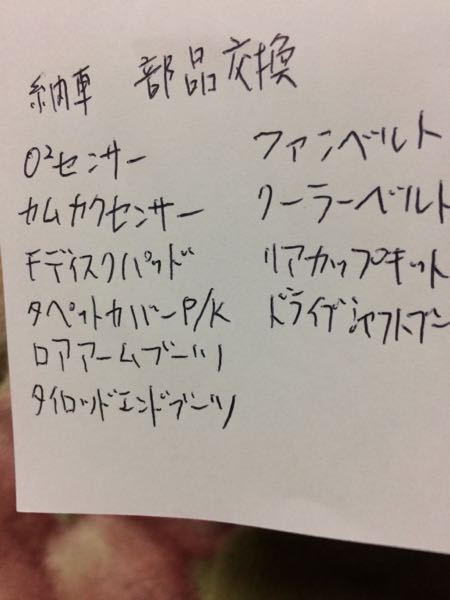 納車 部品交換
O²センサー
カムカクセンサー
Fディスクパッド
タペットカバーP/K
ロアアームブーツ
タイロッドエンドブーツ
ファンベルト
クーラーベルト
リアカップキット
ドライブシャフトブー